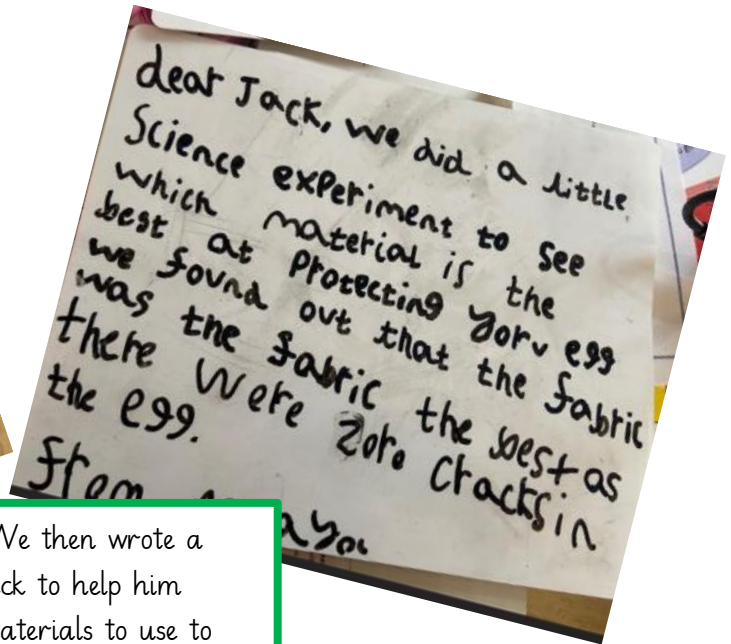 dear Jack, we did a little
Science experiment to see
which material is the
best at Protecting yorv egg
we found out that the fabric
was the fabric the best as
there were Zoro Cracks in
the egg.
from
We then wrote a
ck to help him
aterials to use to